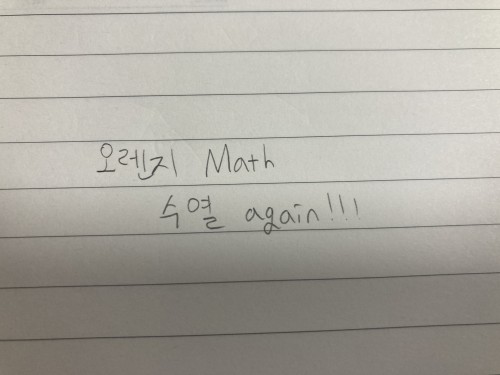 오렌지 Math
수열 again!!!